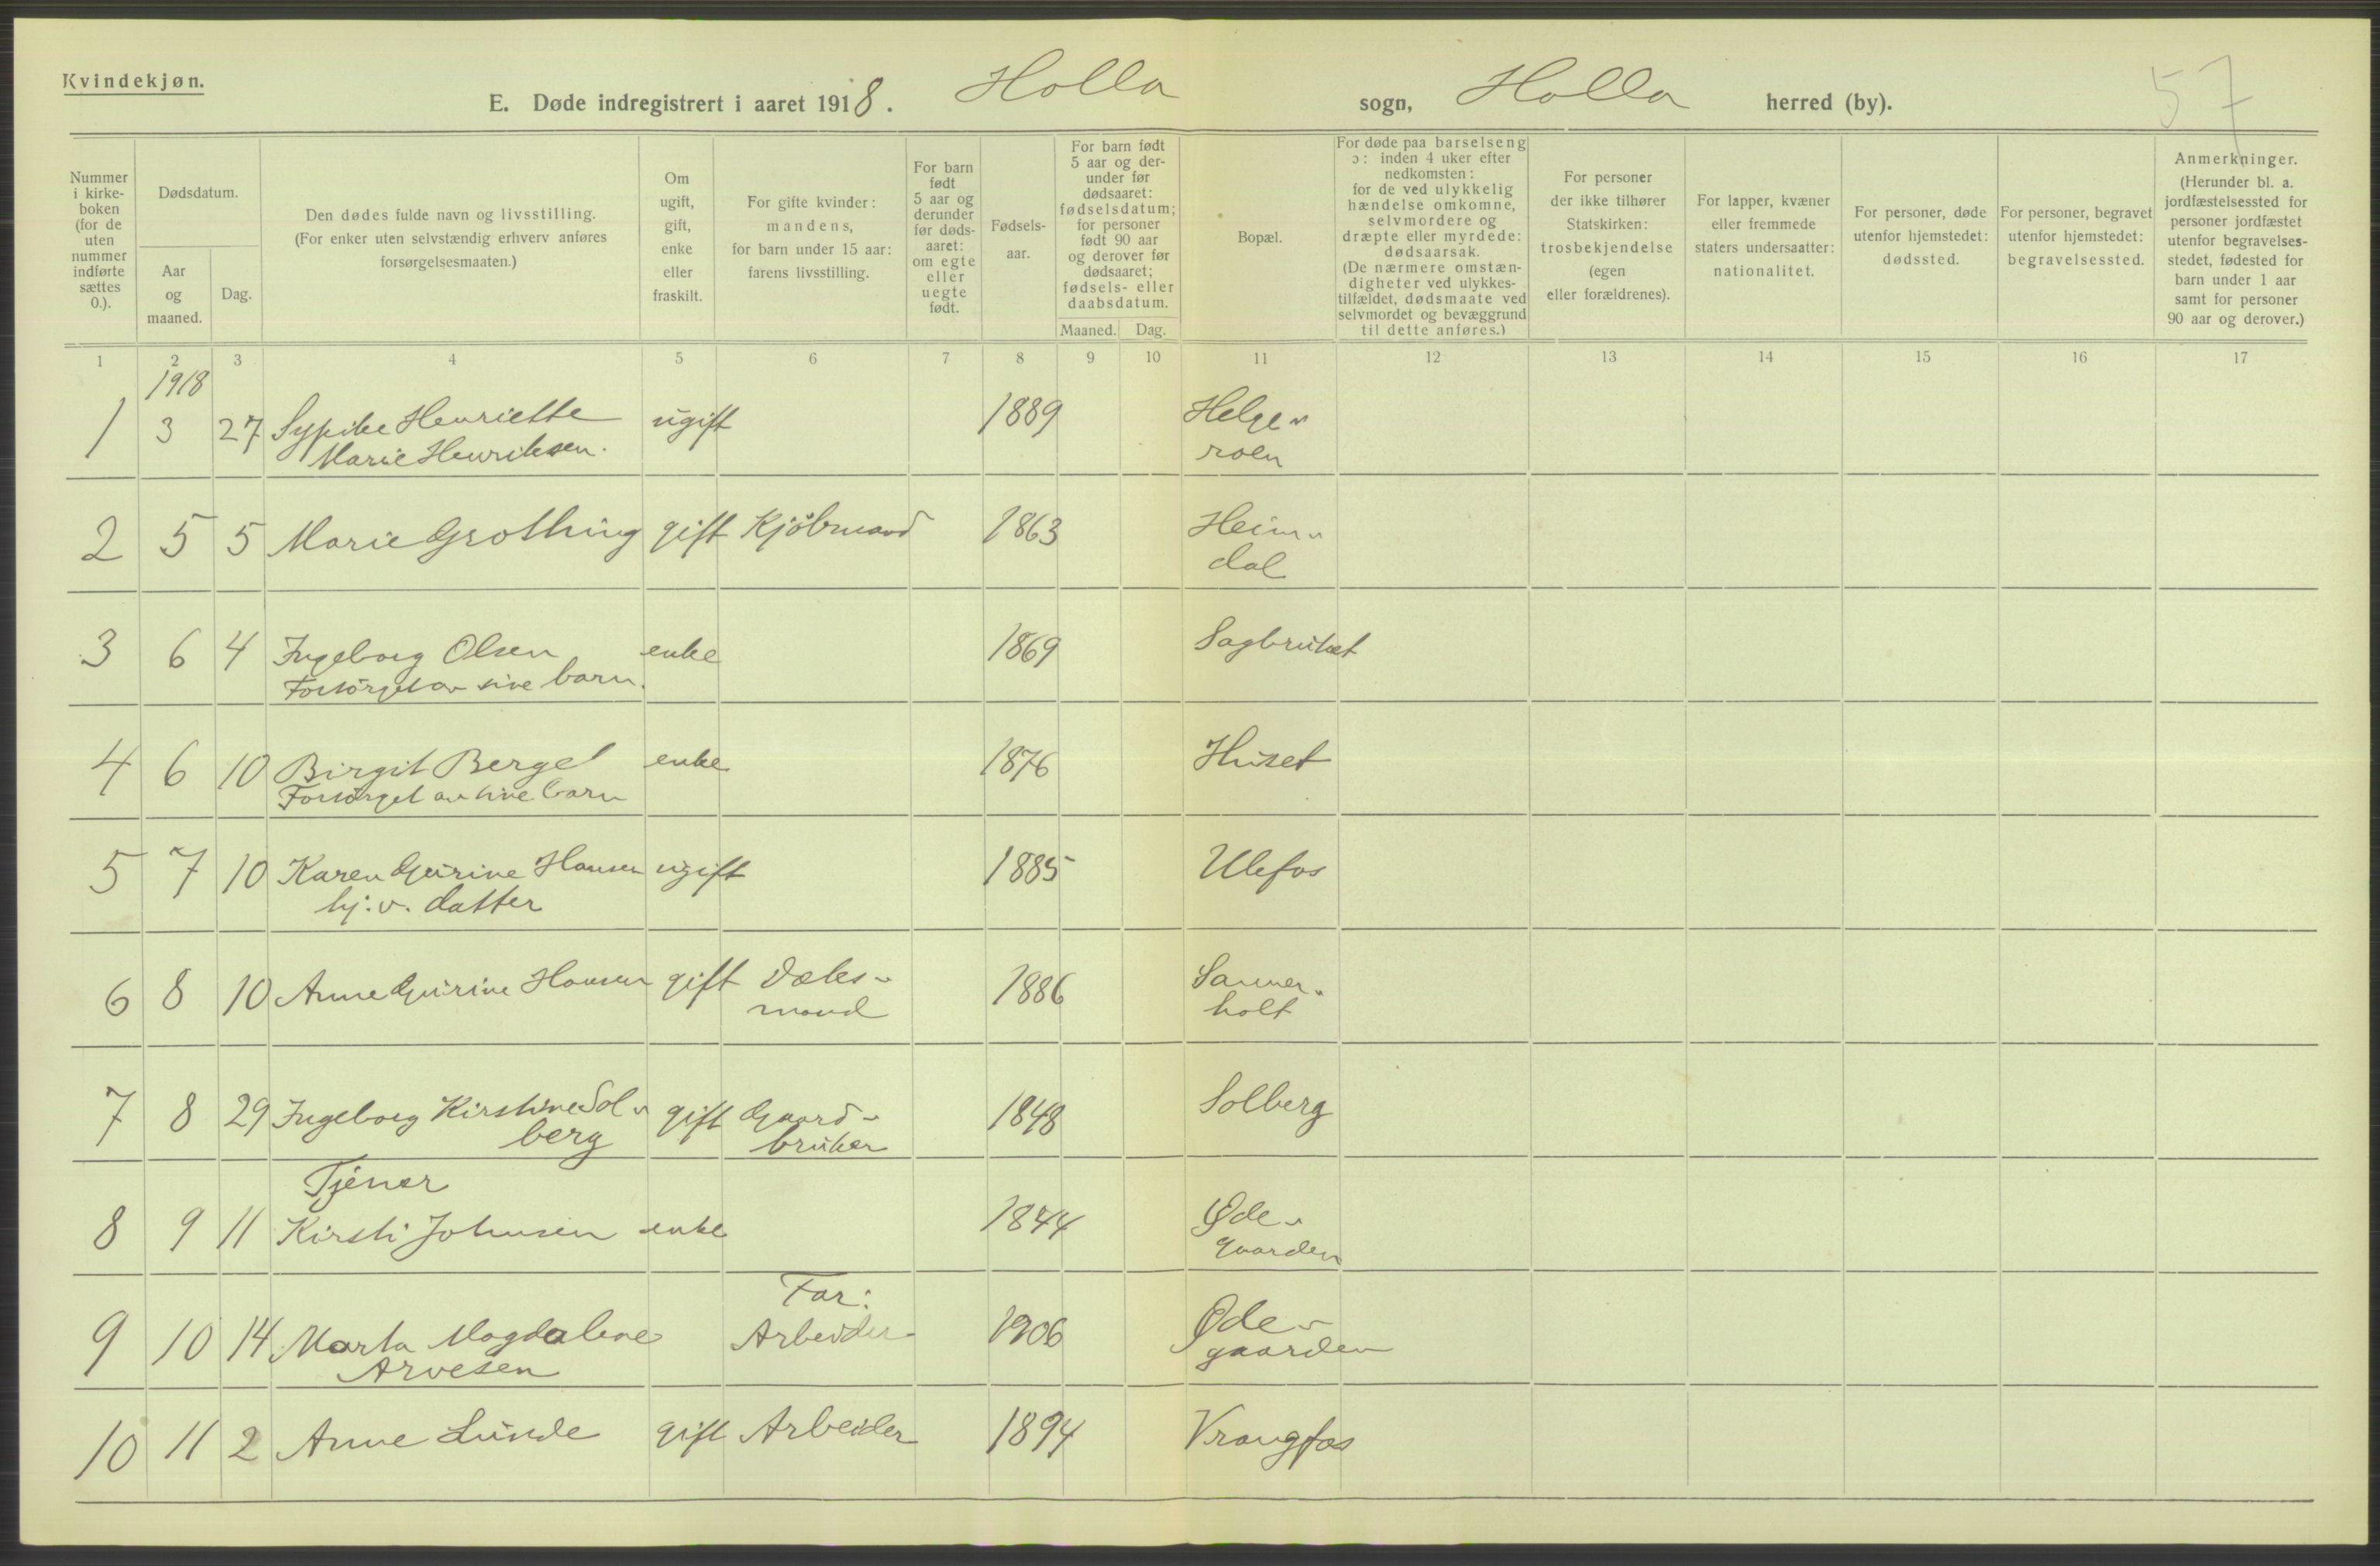 Kvindekjøn.
E. Døde indregistrert i aaret 1918. Holla sogn, Holla herred (by).
57
Nummer i kirkeboken (for de uten nummer indførte sættes 0.).
Dødsdatum.
Aar og maaned.
Dag.
Den dødes fulde navn og livsstilling. (For enker uten selvstændig erhverv anføres forsørgelsesmaaten.)
Om ugift, gift, enke eller fraskilt.
For gifte kvinder: mandens, for barn under 15 aar: farens livsstilling.
For barn født 5 aar og derunder før dødsaaret: om egte eller uegte født.
Fødselsaar.
For barn født 5 aar og derunder før dødsaaret: fødselsdatum; for personer født 90 aar og derover før dødsaaret; fødsels- eller daabsdatum.
Maaned. Dag.
Bopæl.
For døde paa barselseng ɔ: inden 4 uker efter nedkomsten: for de ved ulykkelig hændelse omkomne, selvmordere og dræpte eller myrdede: dødsaarsak. (De nærmere omstændigheter ved ulykkestilfældet, dødsmaate ved selvmordet og bevæggrund til dette anføres.)
For personer der ikke tilhører Statskirken: trosbekjendelse (egen eller forældrenes).
For lapper, kvæner eller fremmede staters undersaatter: nationalitet.
For personer, døde utenfor hjemstedet: dødssted.
For personer, begravet utenfor hjemstedet: begravelsessted.
Anmerkninger. (Herunder bl. a. jordfæstelsessted for personer jordfæstet utenfor begravelsesstedet, fødested for barn under 1 aar samt for personer 90 aar og derover.)
1 2 3 4 5 6 7 8 9 10 11 12 13 14 15 16 17
1918
1 3 27 Sypike Henriette ugift 1889 Helge-
Marie Henriksen. roen
2 5 5 Marie Grothing gift Kjöbmand 1863 Heim-
dal
3 6 4 Ingeborg Olsen enke 1869 Sagbruket
Forsörget av sine barn.
4 6 10 Birgit Berget enke 1876 Huset
Forsörget av sine barn
5 7 10 Karen Gurine Hansen ugift 1885 Ulefos
hj. v. datter
6 8 10 Anne Gurine Hansen gift 1886
mand holt
7 8 29 Ingeborg Kirstine Sol- gift Gaard- 1848 Solberg
berg bruker
Tjener
8 9 11 Kirsti Johnsen enke 1844 Øde-
gaarden
Far:
9 10 14 Marta Magdalene Arbeider 1906 Øde-
Arvesen gaarden
10 11 2 Anne Lunde gift Arbeider 1894 Vrangfos